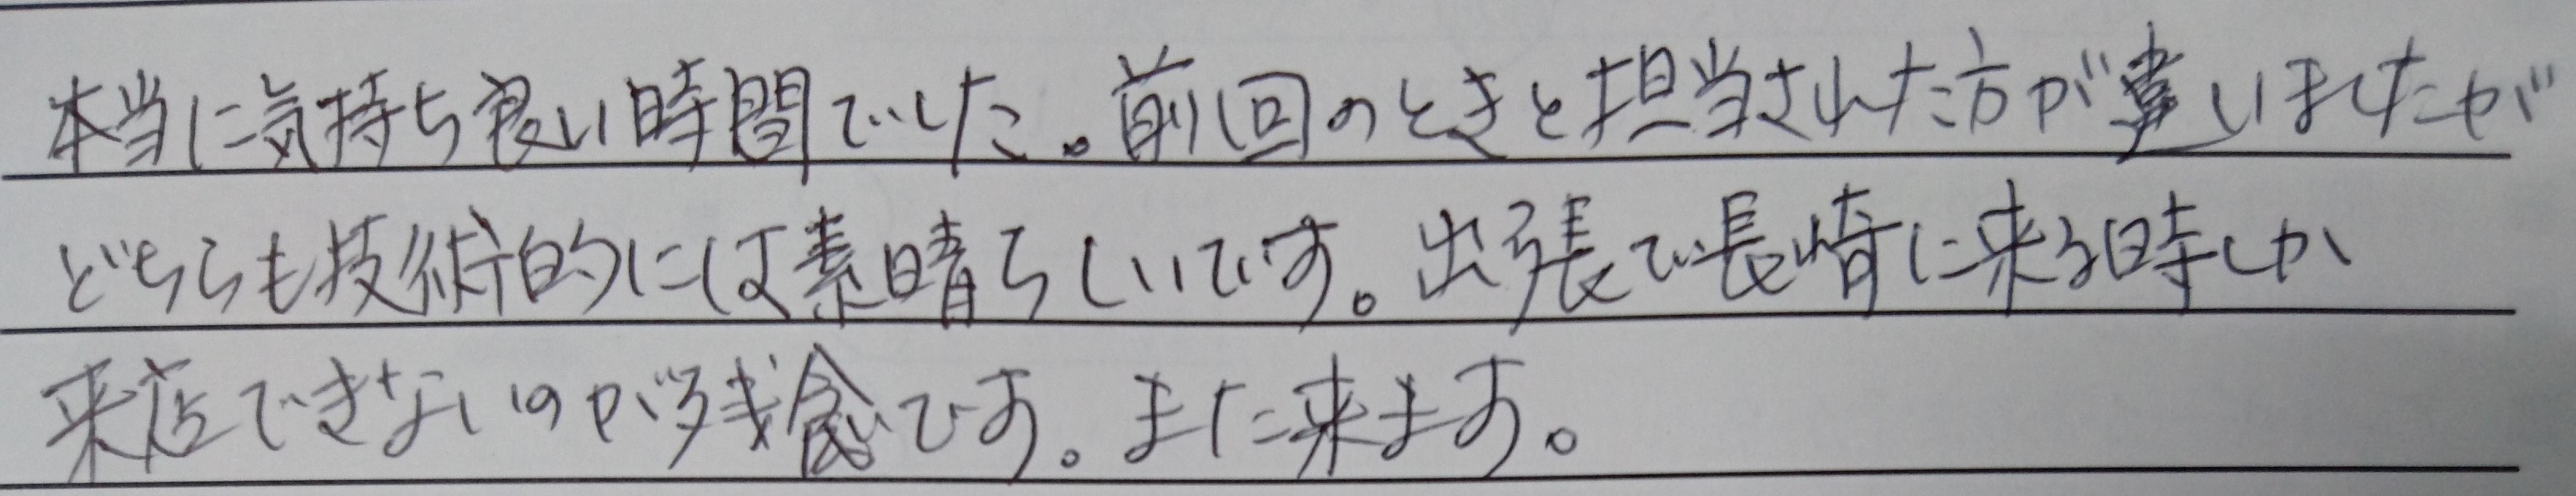 本当に気持ち良い時間でした。前回のときと担当された方が違いましたが
どちらも技術的には素晴らしいです。出張で長崎に来る時しか
来店できないのが残念です。また来ます。